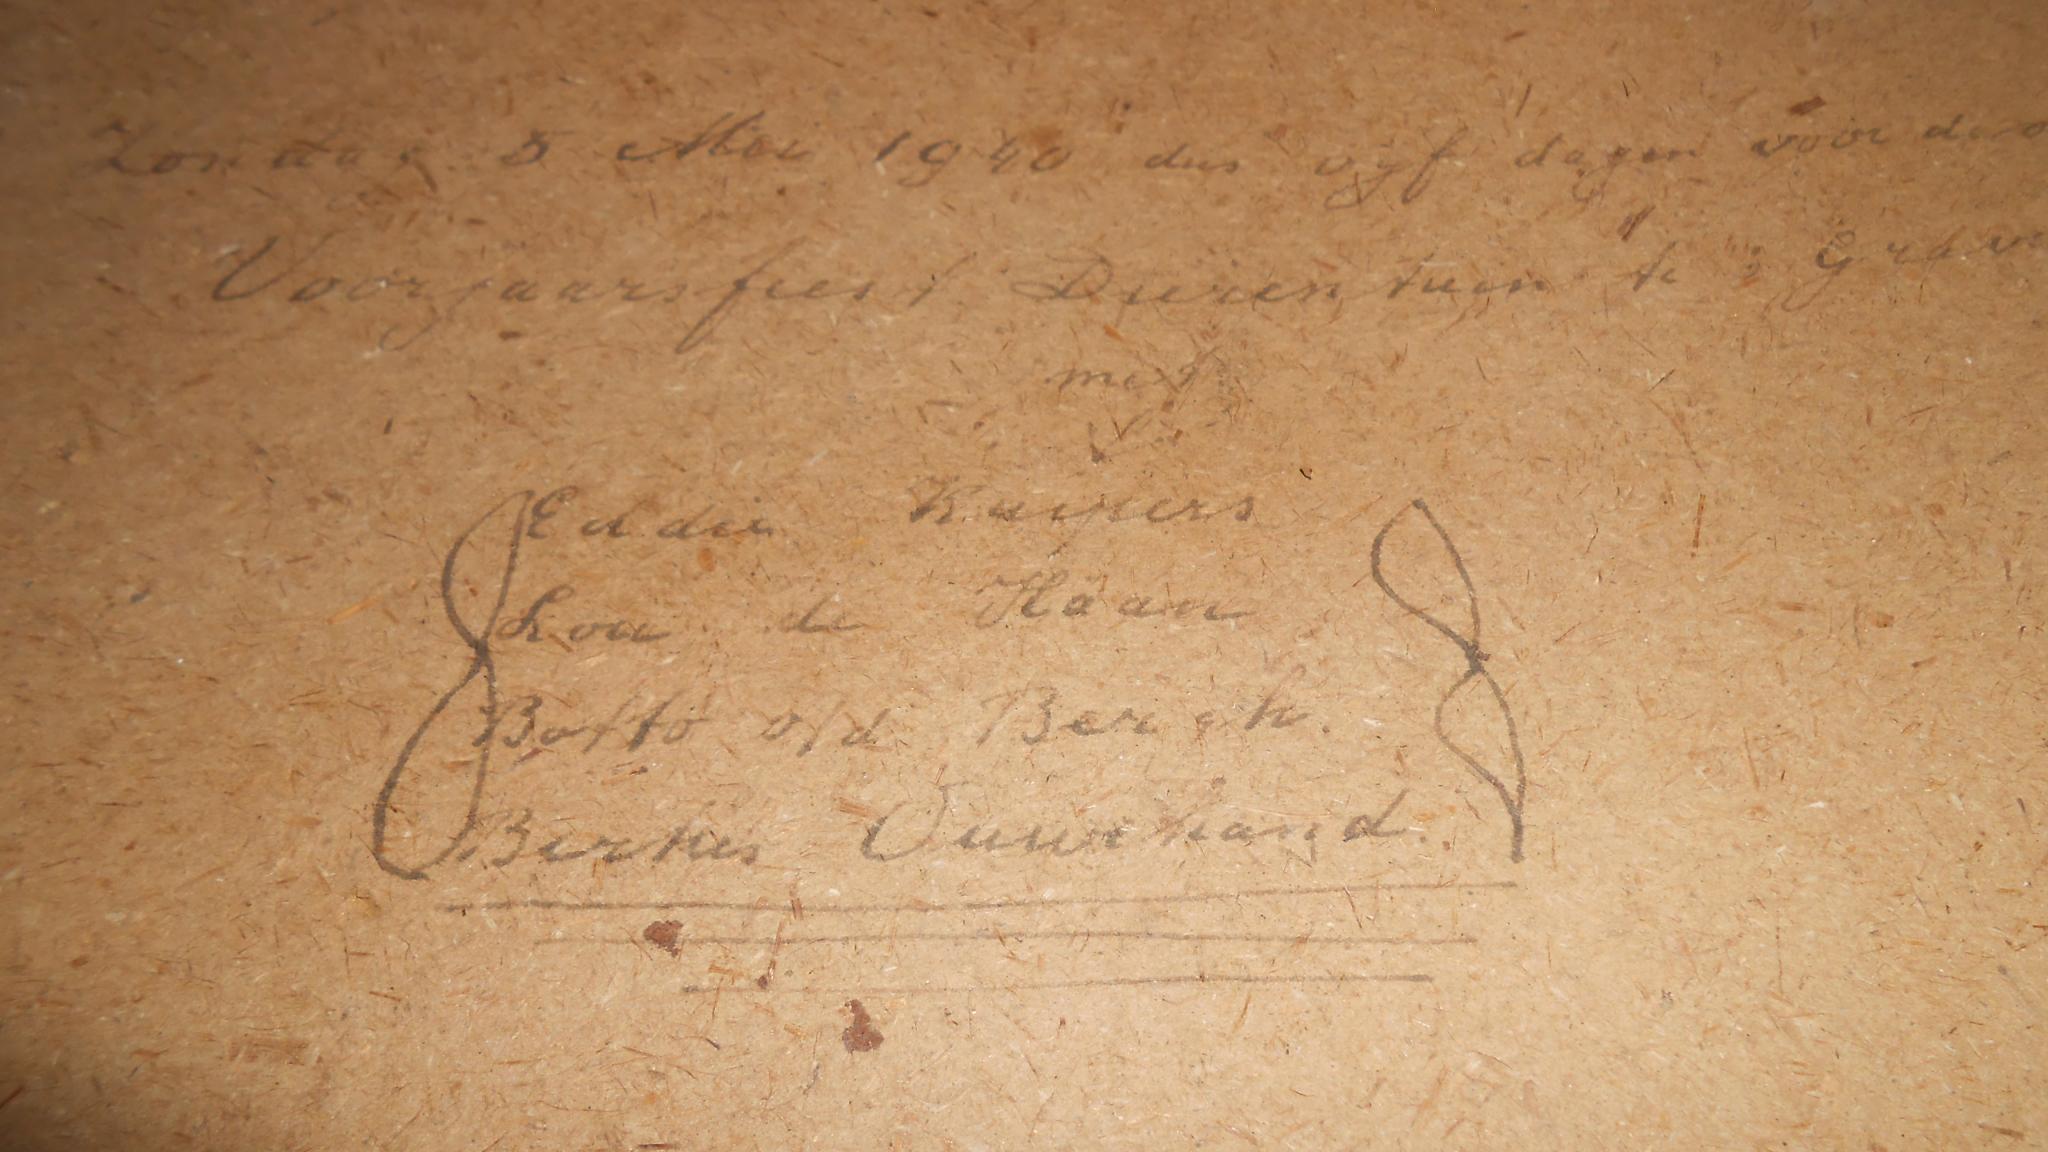 Zondag 5 Mei 1940 dus vijf dagen voor de o
Voorjaarsfeest Dierentuin te 's Grave
met
Eddie Kuijpers
Lou de Haan
Botto v/d Bergh.
Bertus Ouwehand.